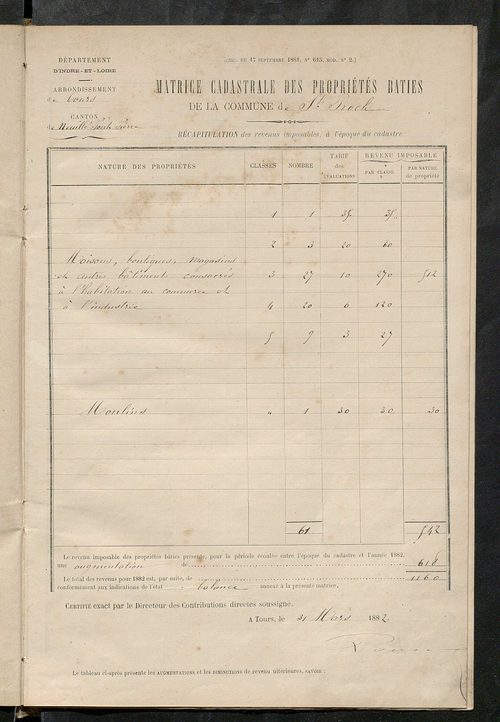 DÉPARTEMENT
D'INDRE-ET-LOIRE
ARRONDISSEMENT
de Tours
CANTON
de Neuillé Pont Pierre
(CIRC. DU 17 SEPTEMBRE 1881, N° 615, MOD. N° 2.)
MATRICE CADASTRALE DES PROPRIÉTÉS BATIES
DE LA COMMUNE de St Roch
RÉCAPITULATION des revenus imposables, à l'époque du cadastre
NATURE DES PROPRIÉTÉS CLASSES NOMBRE TARIF des ÉVALUATIONS REVENU IMPOSABLE
PAR CLASSE PAR NATURE de propriété
1 1 35 35
2 3 20 60
Maisons, boutiques, magasins
et autres bâtiments consacrés 3 27 10 270 512
à l'habitation au commerce et
à l'industrie 4 20 6 120
5 9 3 27
Moulins " 1 30 30 30
61 542
Le revenu imposable des propriétés bâties présente, pour la période écoulée entre l'époque du cadastre et l'année 1882,
une augmentation de 618
Le total des revenus pour 1882 est, par suite, de 1160
conformément aux indications de l'état balance annexé à la présente matrice.
CERTIFIÉ exact par le Directeur des Contributions directes soussigné.
A TOURS, le 31 Mars 1882.
Le tableau ci-après présente les AUGMENTATIONS et les DIMINUTIONS de revenu ultérieures, SAVOIR :